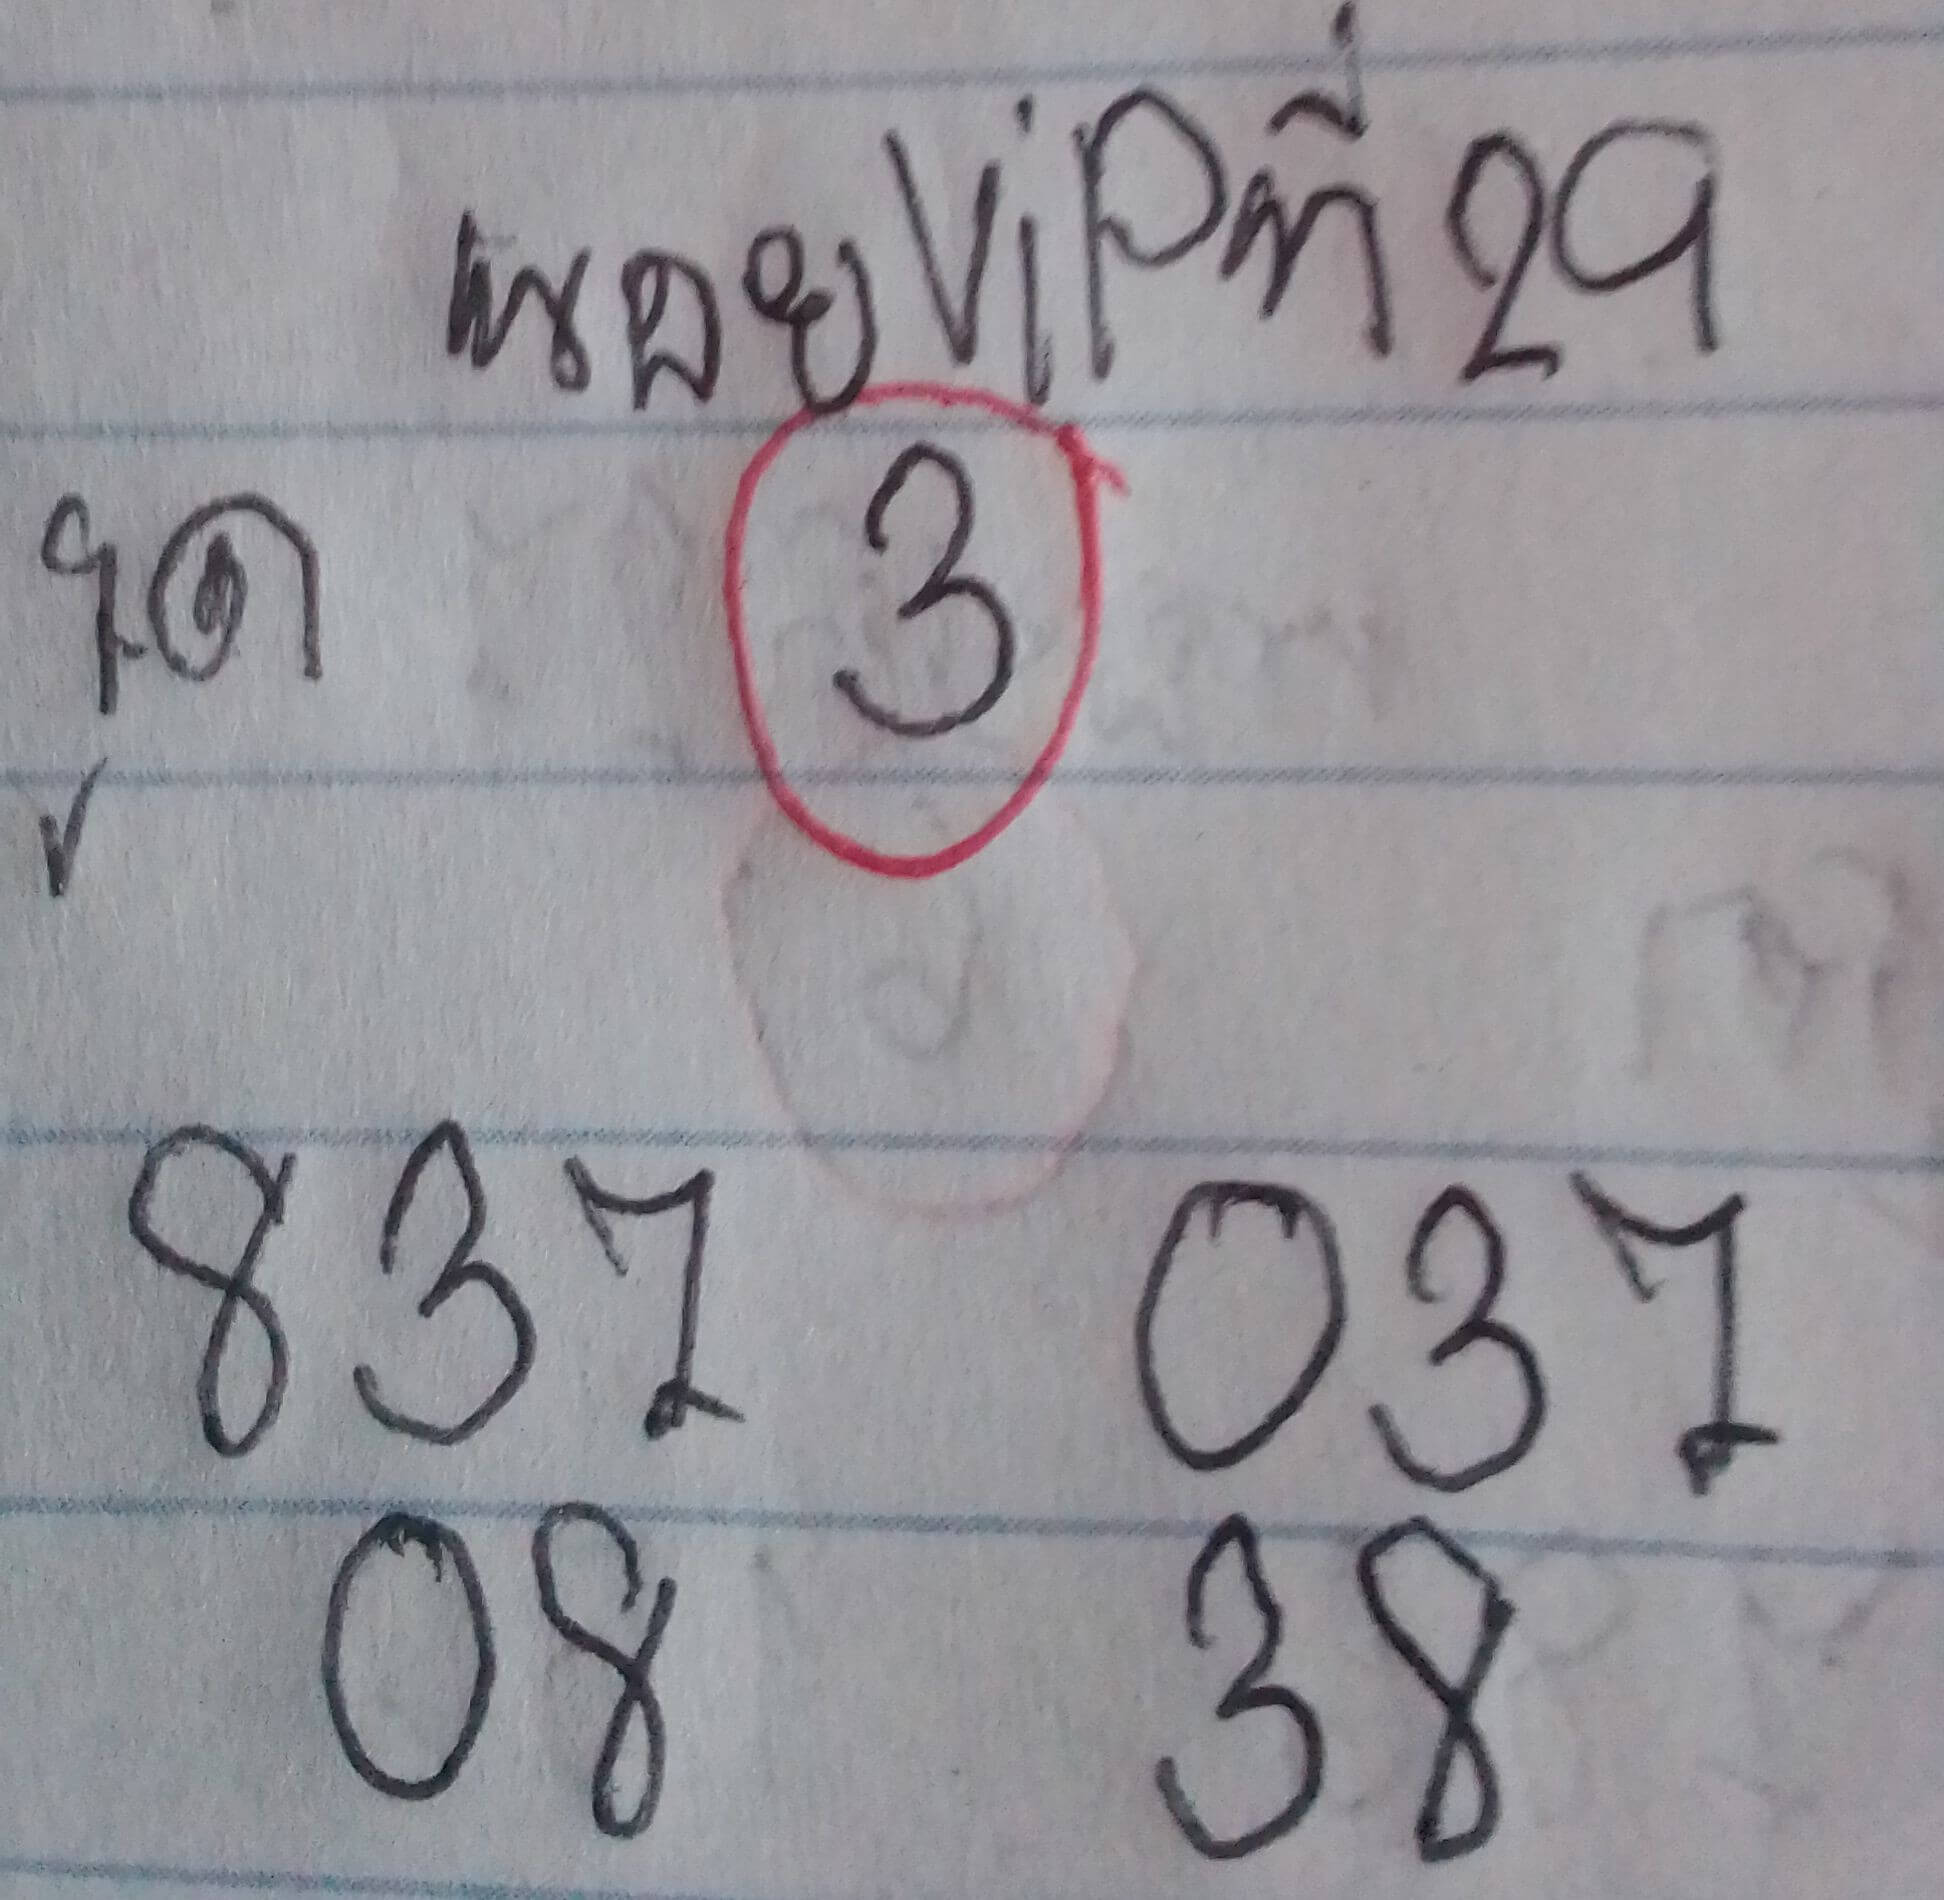 ViPที่ 29
รูด 3
837 037
08 38